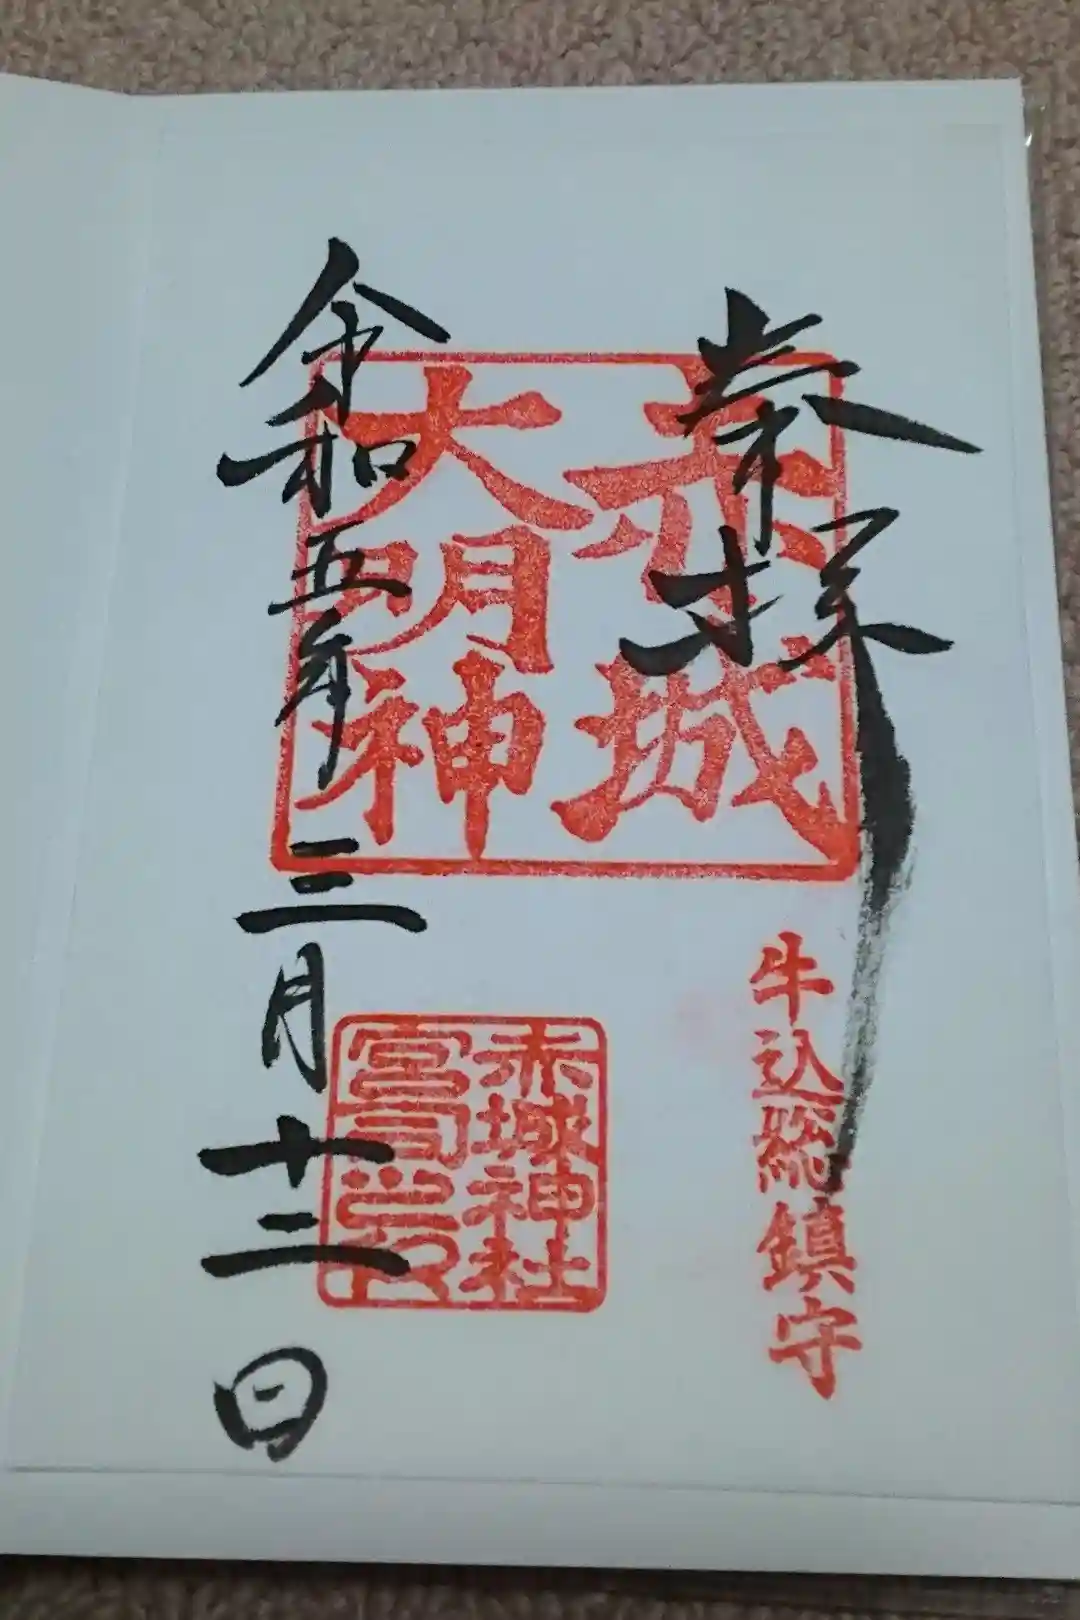 奉拝
赤城
大明神
牛込総鎮守
令和五年三月十二日
赤城神社
宮司之印